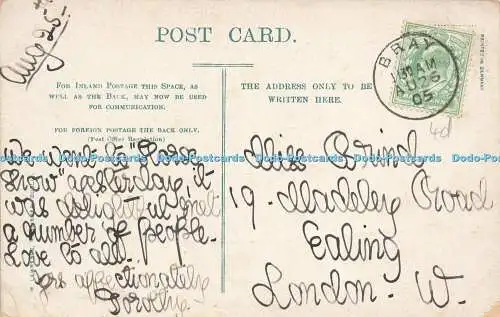 Aug 25th
POST CARD.
FOR INLAND POSTAGE THIS SPACE, AS
WELL AS THE BACK, MAY NOW BE USED
FOR COMMUNICATION.
FOR FOREIGN POSTAGE THE BACK ONLY.
(Post Office Regulation)
THE ADDRESS ONLY TO BE
WRITTEN HERE.
BRAY
AM
AU 26
05
We went to "Horse
Show" yesterday, it
was delightful met
a number of people.
Love to all.
yrs affectionately
Dorothy.
Miss Brind
19. Madeley Road
Ealing
London. W.
Dodo-Postcards Dodo-Postcards Dodo-Postcards